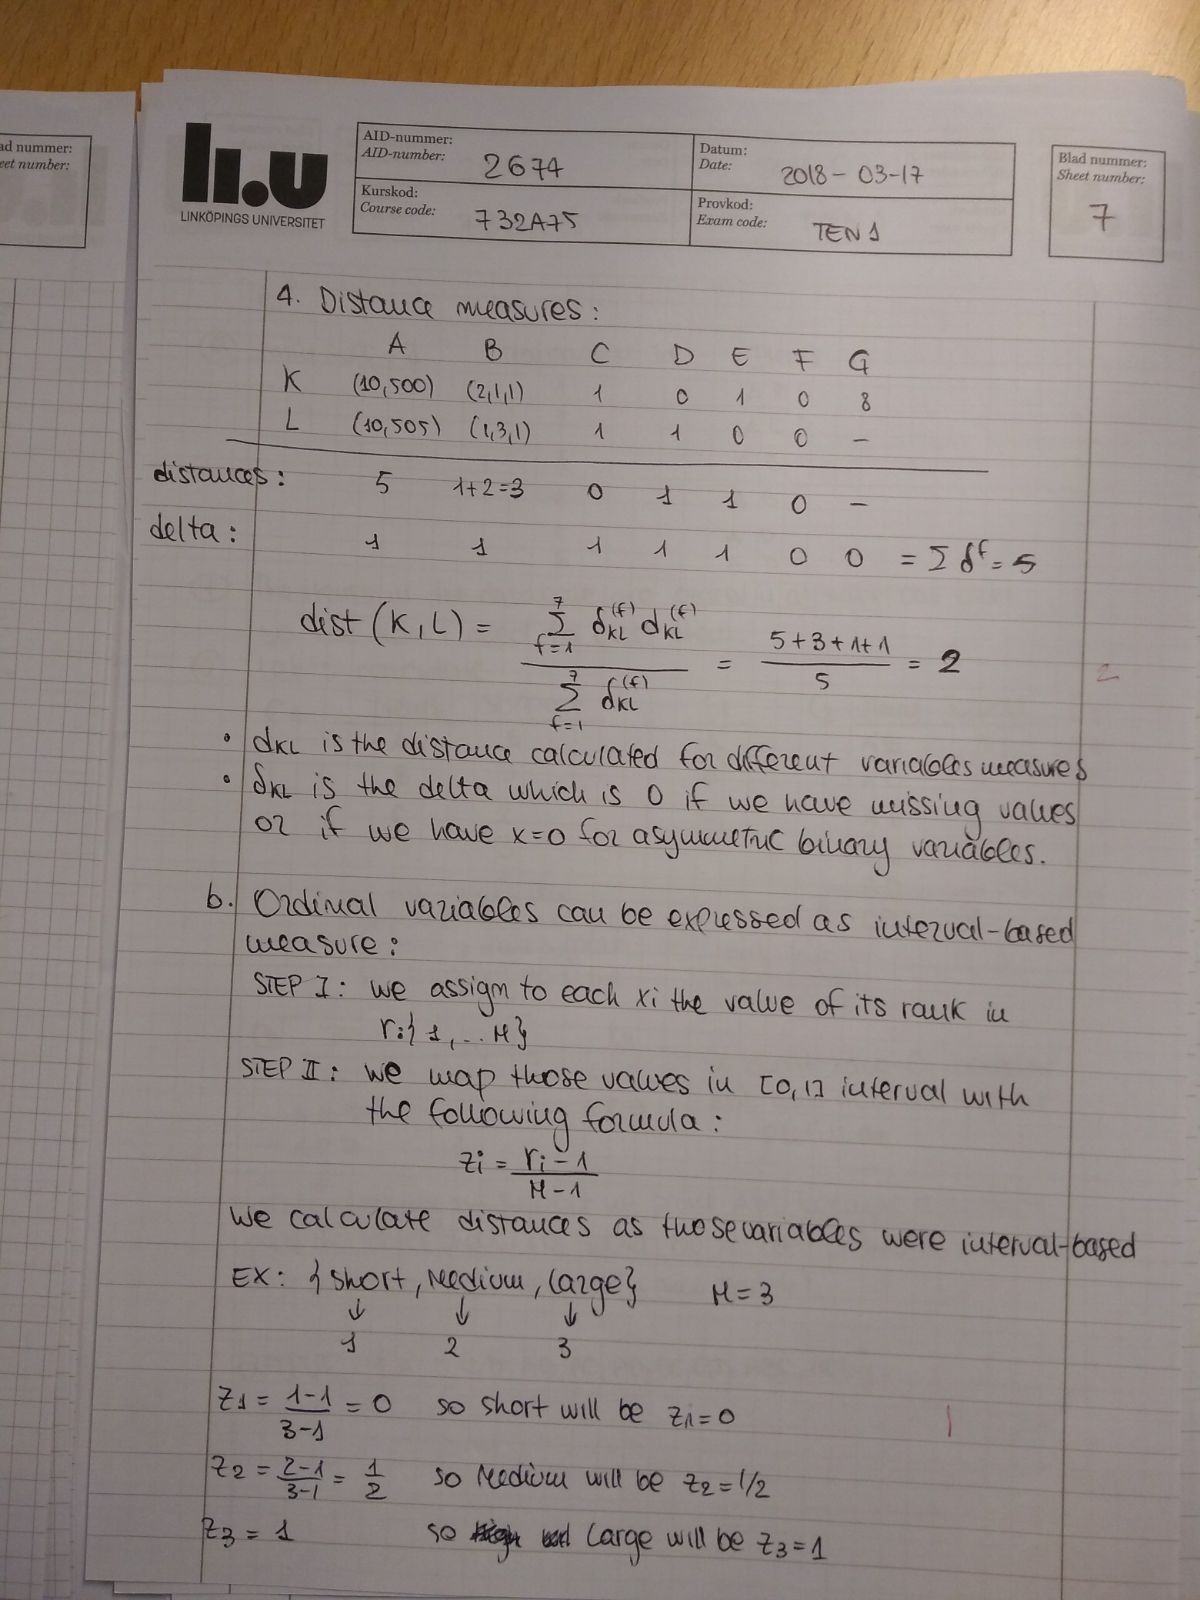 ad nummer:
eet number:
li.u
LINKÖPINGS UNIVERSITET
AID-nummer:
AID-number: 2674
Datum:
Date: 2018-03-17
Kurskod:
Course code: 732A75
Provkod:
Exam code: TEN1
Blad nummer:
Sheet number:
7
4. Distance measures:
A B C D E F G
K (10,500) (2,1,1) 1 0 1 0 8
L (10,505) (1,3,1) 1 1 0 0 –
distances: 5 1+2=3 0 1 1 0 –
delta: 1 1 1 1 1 0 0 = Σ δ^f = 5
dist (K,L) = Σ_{f=1}^{7} δ_{KL}^{(f)} d_{KL}^{(f)} / Σ_{f=1}^{7} δ_{KL}^{(f)} = (5+3+1+1)/5 = 2
2
• d_{KL} is the distance calculated for different variables measures
• δ_{KL} is the delta which is 0 if we have missing values
or if we have x=0 for asymmetric binary variables.
b. Ordinal variables can be expressed as interval-based
measure:
STEP I: we assign to each xi the value of its rank in
ri{1,...M}
STEP II: we map those values in [0,1] interval with
the following formula:
zi = (ri-1)/(M-1)
We calculate distances as those variables were interval-based
EX: {short, Medium, large} M=3
↓ ↓ ↓
1 2 3
z1 = (1-1)/(3-1) = 0 so short will be z1=0
1
z2 = (2-1)/(3-1) = 1/2 so Medium will be z2=1/2
z3 = 1 so large will be z3=1